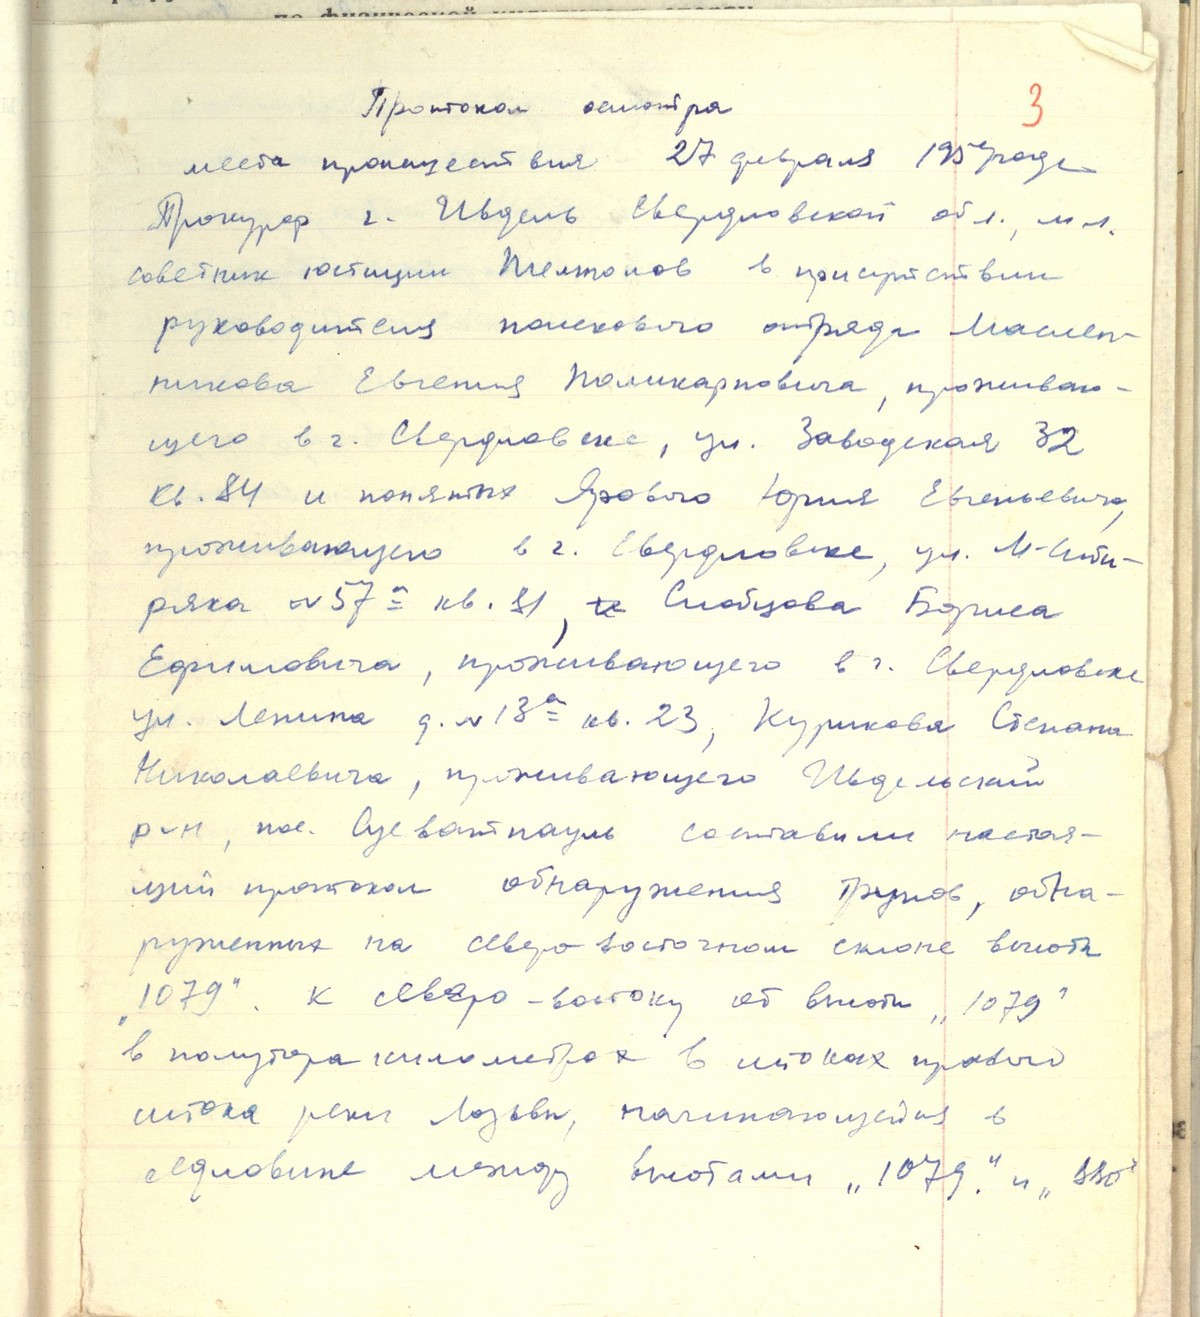 по физической культуре и спорту
3
Протокол осмотра
места происшествия 27 февраля 1959 года
Прокурор г. Ивдель Свердловской обл., мл.
советник юстиции Темпалов в присутствии
руководителя поискового отряда Маслен-
никова Евгения Поликарповича, проживаю-
щего в г. Свердловске, ул. Заводская 32
кв. 84 и понятых Ярового Юрия Евгеньевича,
проживающего в г. Свердловске, ул. М-Сиби-
ряка № 57а кв. 81, Слобцова Бориса
Ефимовича, проживающего в г. Свердловске
ул. Ленина д. № 13а кв. 23, Курикова Степана
Николаевича, проживающего Ивдельский
р-н, пос. Суеватпауль составили настоя-
щий протокол обнаружения трупов, обна-
руженных на северо восточном склоне высоты
„1079". К северо-востоку от высоты „1079"
в полутора километрах в истоках правого
истока реки Лозьвы, начинающейся в
седловине между высотами „1079." и „880"